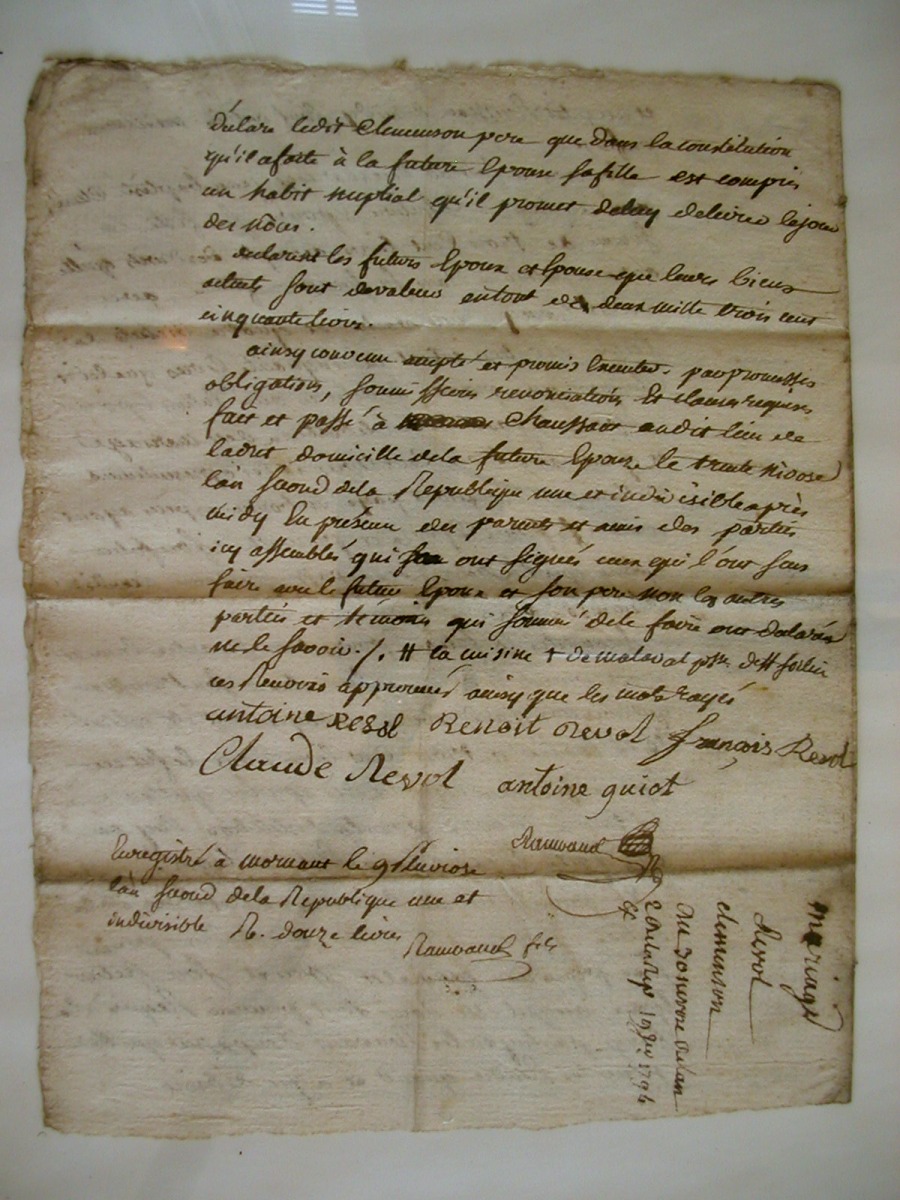 déclare ledit Clemenson pere que dans la constitution
qu'il a faite à la future Epouse sa fille est compris
un habit nuptial qu'il promet de luy delivrer le jour
des nôces.
declarent les futurs Epoux et Epouse que leurs biens
actuels sont de valeur en tout de deux mille trois cent
cinquante livres.
ainsy convenu accepté et promis Executer par promesses
obligations, soumissions renonciations Et clauses requises
fait et passé à Chaussant audit lieu de
ladit domicille de la future Epouse le trente nivose
l'an second de la Republique une et indivisible après
midy En présence des parents et amis des parties
icy assemblés qui ont signés ceux qui l'ont sçus
faire avec le futur Epoux et son pere non les autres
parties et témoins qui sommé de le faire ont declarés
ne le savoir. /. # la cuisine + de
ces Renvois approuvés ainsy que les mots rayés
antoine Revol Benoit Revol françois Revol
Claude Revol antoine guiot
Enregistré à mornant le 9 Pluviose
l'an second de la Republique une et
indivisible R. douze livres
fils
mariage
Revol
clemenson
du 30 nivose de l'an
2 de la Rep 19 1794